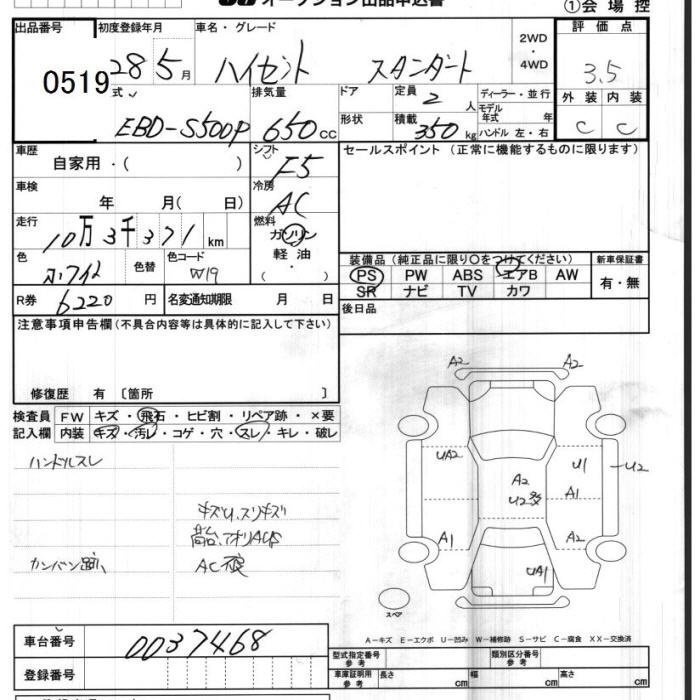 オークション出品申込書
①会場控
出品番号 初度登録年月 車名・グレード 2WD ・ 4WD 評価点
0519 28 5月 ハイゼット スタンダート 3.5
式 排気量 ドア 定員 2 人 ディーラー・並行 外装 内装
モデル年式 年
EBD-S500P 650cc 形状 積載 350kg ハンドル 左・右 C C
車歴 シフト セールスポイント (正常に機能するものに限ります)
自家用・( ) F5
車検 冷房
年 月( 日) AC
走行 燃料
10万3千371km ガソリン
軽油
( )
色 色替 色コード
ホワイト W19
装備品 (純正品に限り〇をつけてください) 新車保証書
PS PW ABS エアB AW 有・無
SR ナビ TV カワ
R券 6220円 名変通知期限 月 日
後日品
注意事項申告欄(不具合内容等は具体的に記入して下さい)
修復歴 有 〔箇所 〕
検査員 FW キズ・飛石・ヒビ割・リペア跡・×要
記入欄 内装 キズ・汚レ・コゲ・穴・スレ・キレ・破レ
ハンドルスレ
キズU、スリキズ
荷台、アオリAUS
カンバン跡、 AC
A2 A2
UA2 U1 U2
A2
U2多 A1
A1 A2
UA1
スペア
A-キズ E-エクボ U-凹み W-補修跡 S-サビ C-腐食 XX-交換済
車台番号 0037468
型式指定番号 参考 類別区分番号 参考
登録番号
車庫証明用 参考 長さ cm 幅 cm 高さ cm